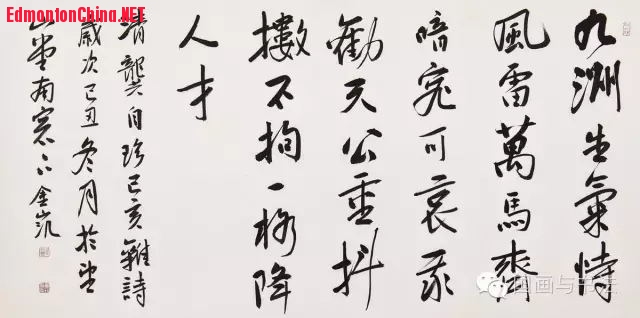 EdmontonChina.NET
九洲生氣恃
風雷萬馬齊
喑究可哀我
勸天公重抖
擻不拘一格降
人才
清龔自珍己亥雜詩
歲次己丑冬月於望
山堂南窗下金
国画与书法